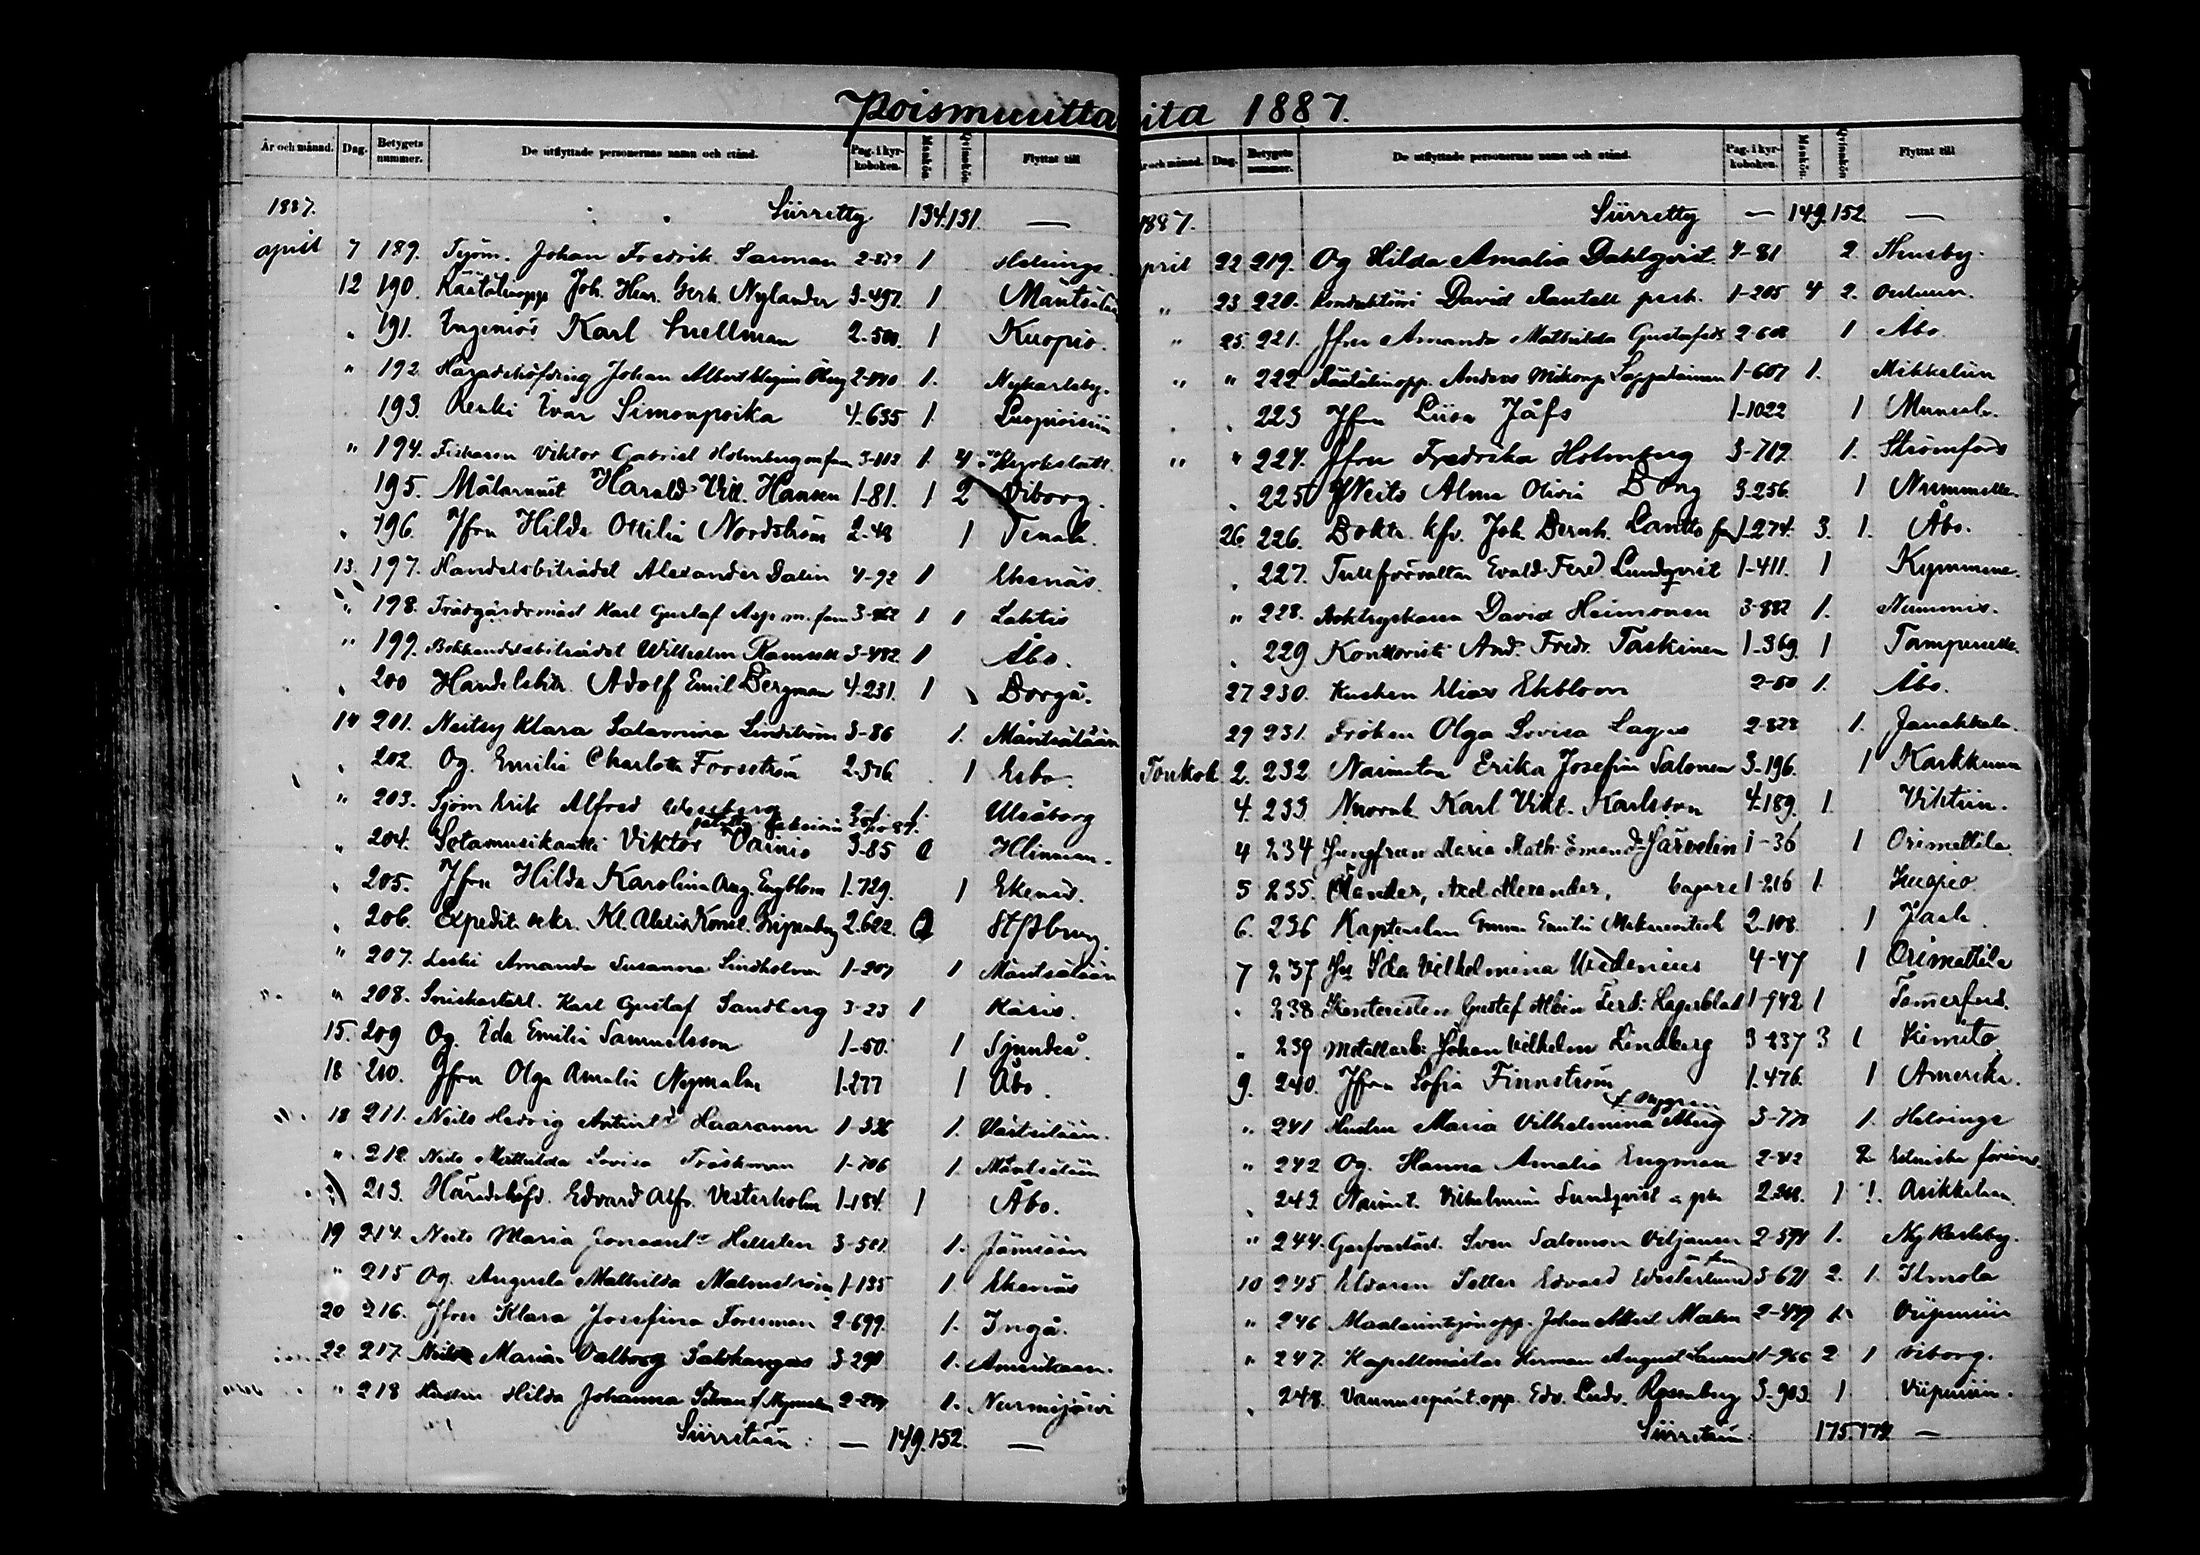 Poismuuttaita 1887.
År och månad. Dag. Betygets nummer. De utflyttade personernas namn och stånd. Pag. i kyrkoboken. Mankön. Qvinnkön. Flyttat till
1887. Siirretty 134. 131. —
april 7 189. Työm. Johan Fredrik Sarman 1 Helsinge.
12 190. Räätälinopp. Joh. Henr. Gerh. Nylander 3-497. 1 Mäntsälä
" 191. Ingeniör Karl Snellman 2-500. 1 Kuopio.
" 192. Häradshöfding Johan Albert 1. Nykarleby.
193. Renki Ivar Simonpoika 4-635 1.
" 194. Fiskaren Viktor Gabriel Holmberg m fam 3-113 1. 4 Kyrkslätt
195. Målarmäst Harald Vill. Hansen 1-81. 1 2 Viborg.
" 196. Jfru Hilda Ottilia Nordström 2-48 1 Tenala.
13. 197. Handelsbiträdet Alexander Dalin 4-92 1 Ekenäs.
" 198. Trädgårdsmäst Karl Gustaf Asp m. fam 1 1 Lahtis
" 199. Bokhandelsbiträdet Wilhelm Ramsell 3-482. 1 Åbo.
" 200 Handelsbitr. Adolf Emil Bergman 4-231. 1 Borgå.
14 201. Neitsy Klara Salomina Lindström 3-86 1. Mäntsälään
" 202. Og. Emilia Charlotta Forsström 2-576 1 Esbo.
" 203. Sjöm Erik Alfred Uleåborg
" 204. Sotamusikantti Viktor Vainio 3-85
" 205. Jfru Hilda Karolina Aug. Engblom 1-729. 1 Ekenäs.
" 206. Expedit. sekr. Kl. Alexis Konst. Gripenberg 2-622. St Pbourg.
" 207. Leski Amanda Susanna Lindholm 1-207 1 Mäntsälään
" 208. Karl Gustaf Sandberg 3-23 1 Karis.
15. 209 Og. Ida Emilia Samuelsson 1-50. 1 Sjundeå.
18 210. Jfru Olga Amalia Nymalm 1-277 1 Åbo.
18 211. Neits Hedvig Antint:r Haaranen 1-336 1.
" 212. Neits Mathilda Lovisa Träskman 1-706 1. Mäntsälään
" 213. Häradshöfd. Edvard Alfr. Vesterholm 1-184. 1 Åbo.
19 214. Neits Maria Joonaant:r Hellsten 1. Jämsään
" 215 Og. Augusta Mathilda Malmström 1-135 1. Ekenäs
20 216. Jfru Klara Josefina Forsman 2-699. 1. Ingå.
22 217. Neits Maria Valborg Salokangas 3-291 1. Amerikaan.
" 218 Hustru Hilda Johanna f. Nyman 1. Nurmijärvi
Siirretään: — 149. 152. —
År och månad. Dag. Betygets nummer. De utflyttade personernas namn och stånd. Pag. i kyrkoboken. Mankön. Qvinnkön Flyttat till
1887. Siirretty — 149. 152. —
april 22 219. Og Hilda Amalia Dahlqvist. 4-81 2.
" 23 220. Konduktööri David Rantell perh. 1-205 4 2.
" 25. 221. Jfru Amanda Mathilda Gustafsd:r 2-608 1 Åbo.
" " 222 Räätälinopp. Anders Mikonp. Lappalainen 1-607 1. Mikkeliin
" " 223 Jfru Liisa Jåfs 1-1022 1 Munsala.
" " 224. Jfru Fredrika Holmberg 3-719. 1. Strömfors
" 225 Neits Alma Olivia Borg 3-256. 1 Nummelle.
26. 226. Boktr. kfv. Joh. Bernh. Lantto fm 1-274. 3. 1. Åbo.
" 227. Tullförvaltar Evald Ferd. Lundqvist 1-411. 1 Kymmene.
" 228. Boktryckaren David Heimonen 3-882 1. Nummis.
" 229 Konttoristi And. Fredr. Taskinen 1-369. 1 Tampereelle.
27 230. Kusken Elias Ekblom 2-50 1. Åbo.
29 231. Fröken Olga Lovisa Lagus 2-828 1. Janakkala.
Toukok 2. 232 Naimaton Erika Josefina Salonen 3-196. 1 Karkkuun
4. 233. Nuoruk Karl Vikt. Karlsson 4-189. 1. Vihtiin.
4 234. Jungfrun Maria Math. Emand:r Järvelin 1-36 1 Orimattila.
5 235. Ölander, Axel Alexander, bagare 1-216 1. Kuopio.
6. 236 Kaptenskan Emilie 2-108. 1
7 237 Jfr Ida Vilhelmina Widenius 4-47 1 Orimattila
" 238. Kontoristen Gustaf Albin Ferd: Hagerblad 1-942 1 Tammerfors.
" 239 Metallarb: Johan Vilhelm Lindberg 3-237 3 1 Kimito
9. 240. Jfru Sofia Finnström 1-476. 1 Amerika.
" 241 Hustru Maria Vilhelmina Åberg 1. Helsinge
" 242 Og. Hanna Amalia Engman 2-412 2
" 243. Naimat. Vilhelmina Lundqvist 1 1. Asikkalaan.
" 244. Gasfvarfvast. Sven Salomon Viljanen 1. Ny Karleby.
10 245 Eldaren Seller Edvard Vesterlund m fam 3-671 2. 1. Ilmola
" 246 Maalarintyönopp. Johan Albert Malm 2-479 1. Viipuriin
" 247. Kapellmästar Herman August 1-966 2 1 Viborg.
" 248. Vaunusepänt. opp. Edv. Ludv. Rosenberg 3-903. 1 Viipuriin.
Siirretään: 175. 172 —